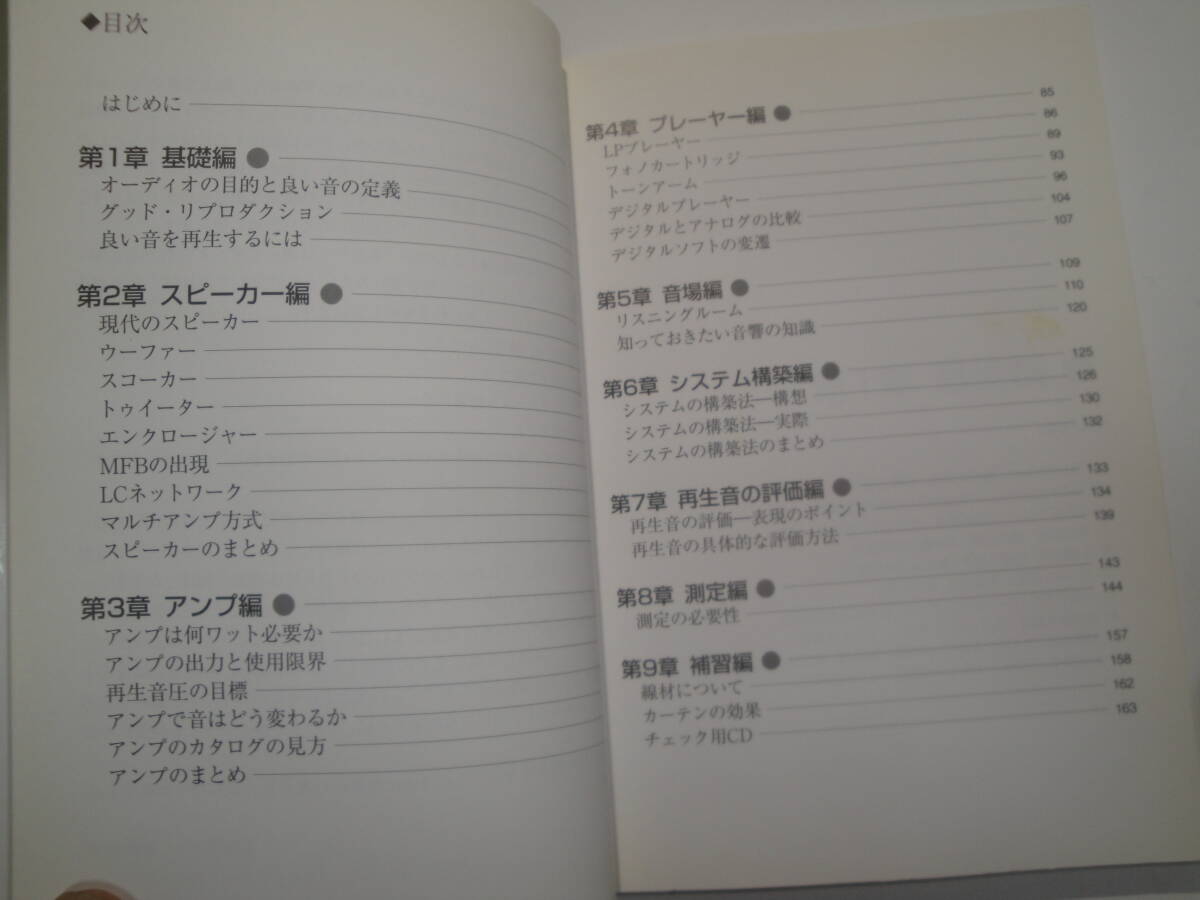 ◆目次
はじめに
第1章 基礎編●
オーディオの目的と良い音の定義
グッド・リプロダクション
良い音を再生するには
第2章 スピーカー編●
現代のスピーカー
ウーファー
スコーカー
トゥイーター
エンクロージャー
MFBの出現
LCネットワーク
マルチアンプ方式
スピーカーのまとめ
第3章 アンプ編●
アンプは何ワット必要か
アンプの出力と使用限界
再生音圧の目標
アンプで音はどう変わるか
アンプのカタログの見方
アンプのまとめ
第4章 プレーヤー編● 85
LPプレーヤー 86
フォノカートリッジ 89
トーンアーム 93
デジタルプレーヤー 96
デジタルとアナログの比較 104
デジタルソフトの変遷 107
第5章 音場編● 109
リスニングルーム 110
知っておきたい音響の知識 120
第6章 システム構築編● 125
システムの構築法―構想 126
システムの構築法―実際 130
システムの構築法のまとめ 132
第7章 再生音の評価編● 133
再生音の評価―表現のポイント 134
再生音の具体的な評価方法 139
第8章 測定編● 143
測定の必要性 144
第9章 補習編● 157
線材について 158
カーテンの効果 162
チェック用CD 163